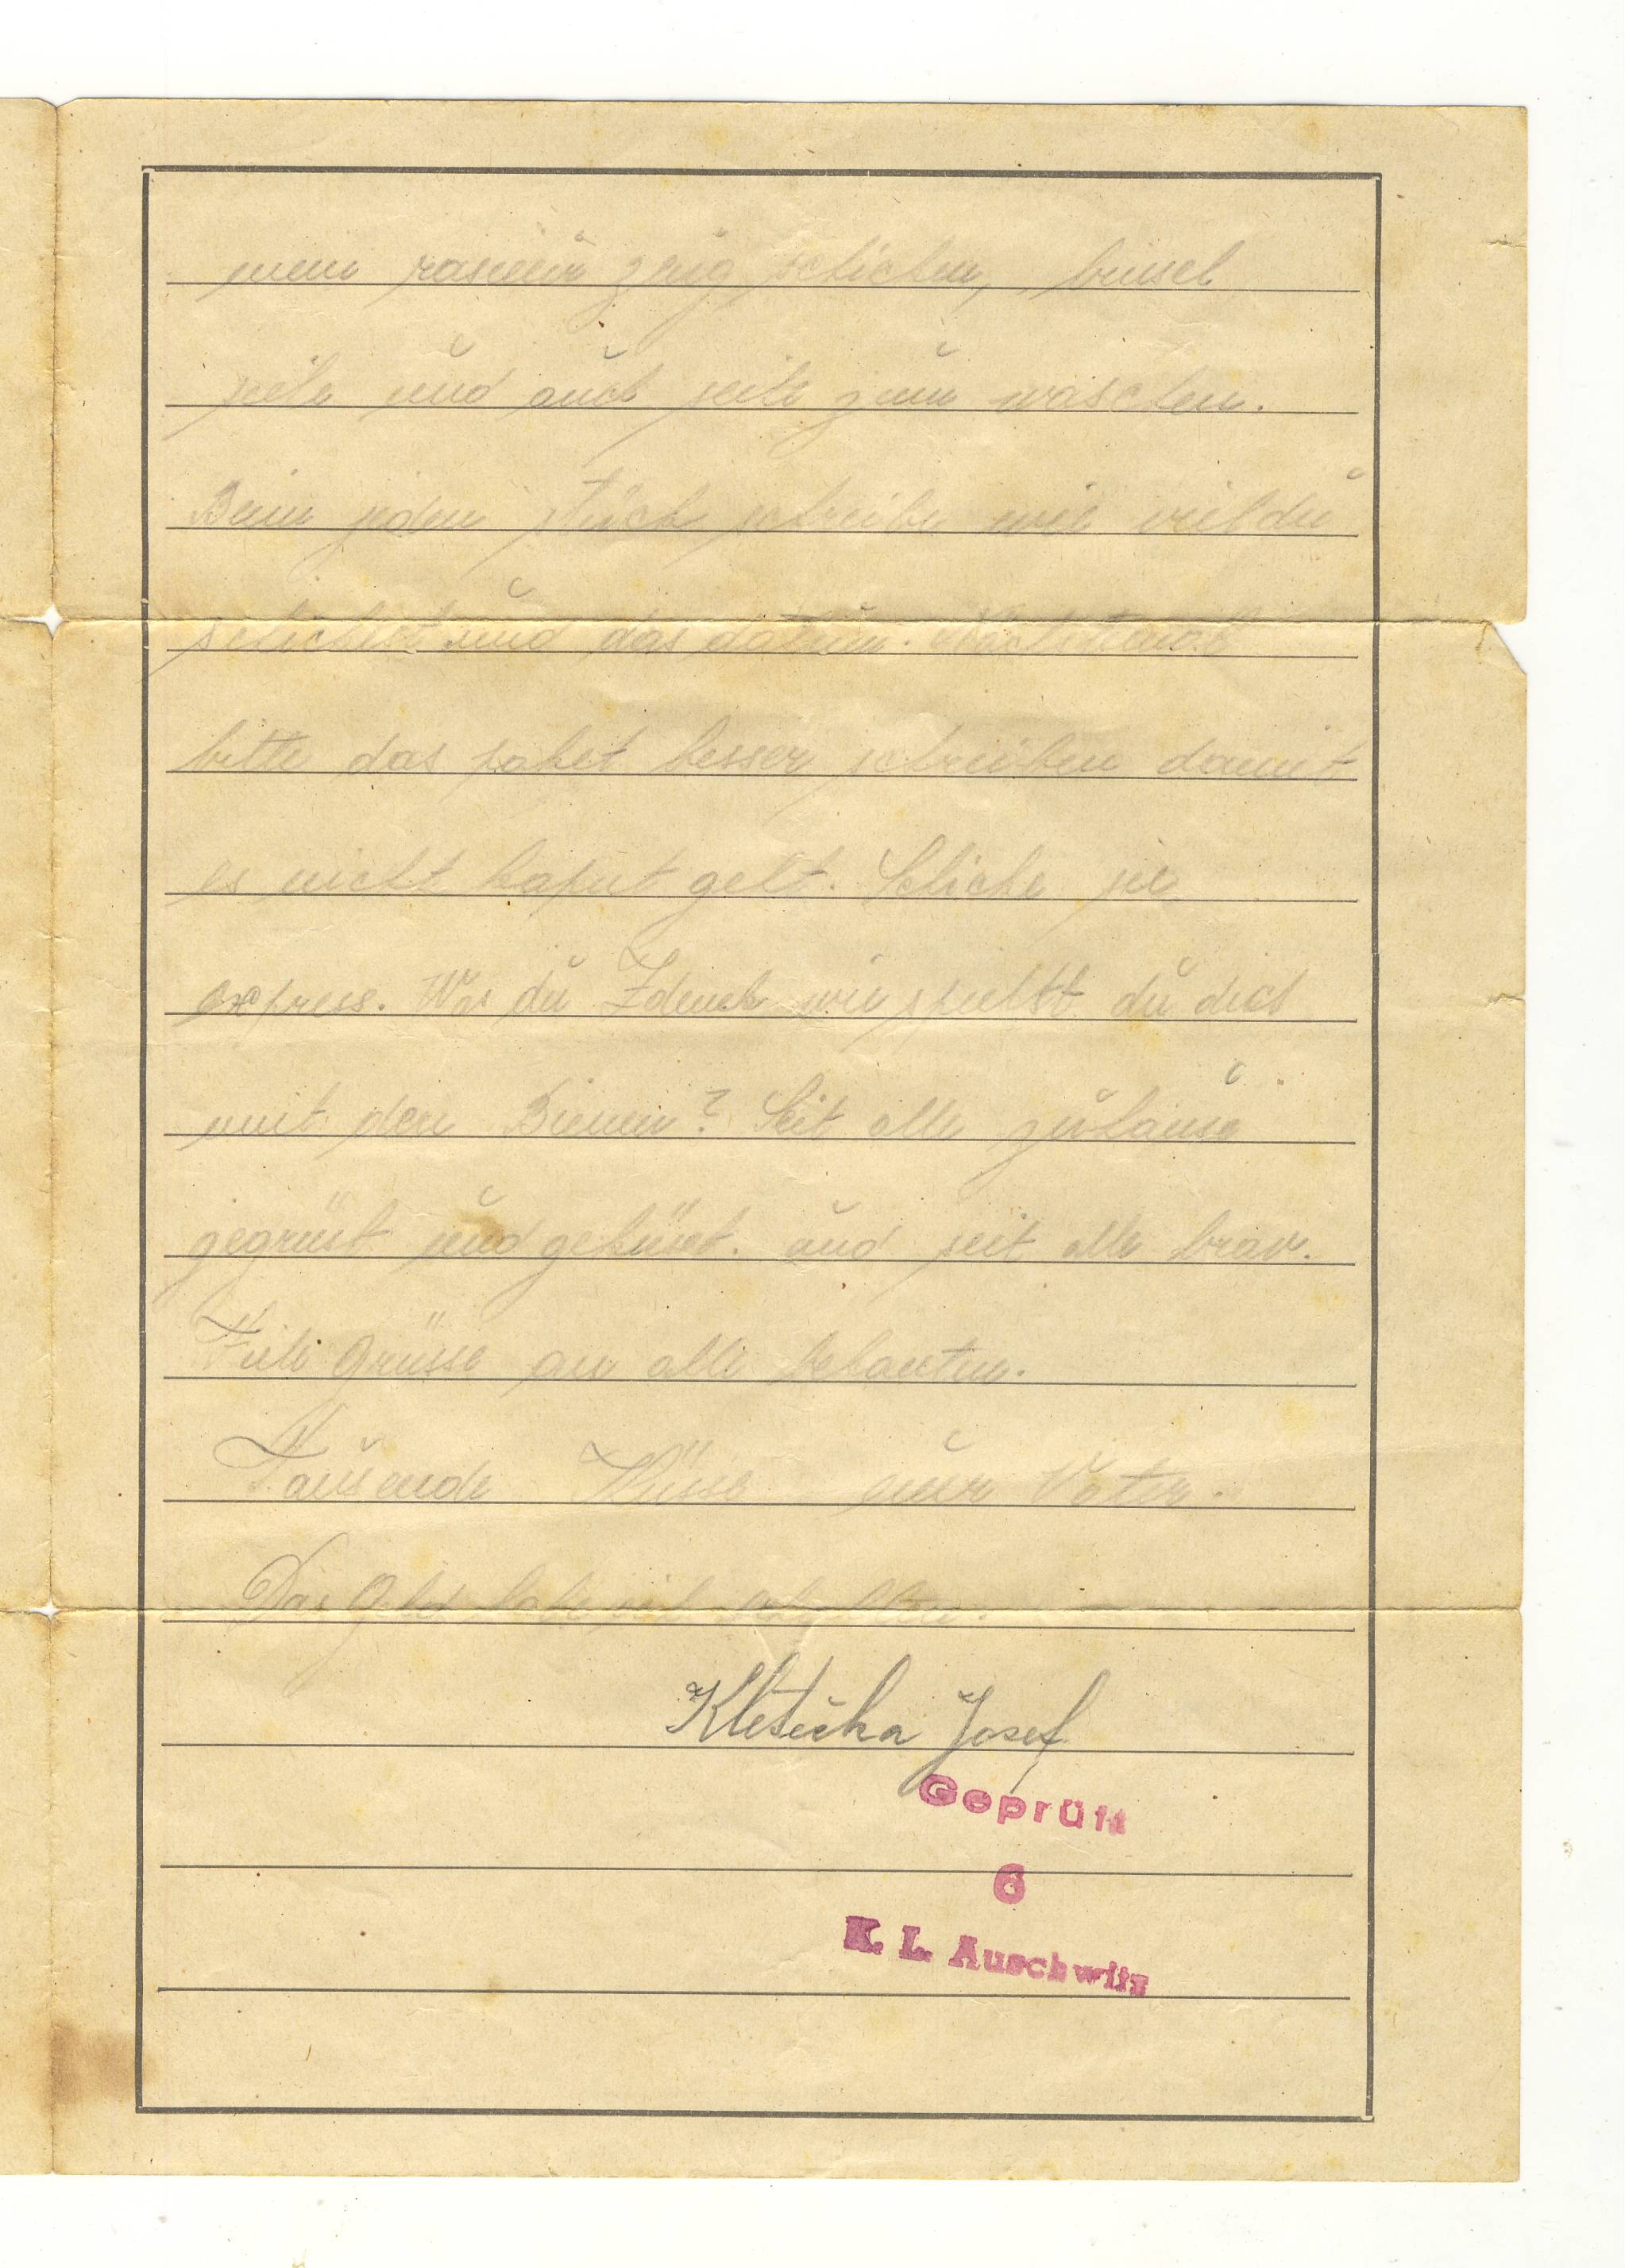 mein rasieir zeig schicken, binsel
seife und auch seife zum waschen.
Beim jeden stück schreibe wie viel du
schickst und das datum. Nächstemal
bitte das paket besser schreiben damit
es nicht kaput geht. Schicke sie
express. Was du Zdenek wie spielst du dich
mit den Bienen? Seit alle zuhause
gegrüst und geküset. und seit alle brav.
Fiele Grüsse an alle bekanten.
Tausende Küsse euer Vater.
Das Geld habe ich erhalten.
Kletečka Josef
Geprüft
6
K. L. Auschwitz